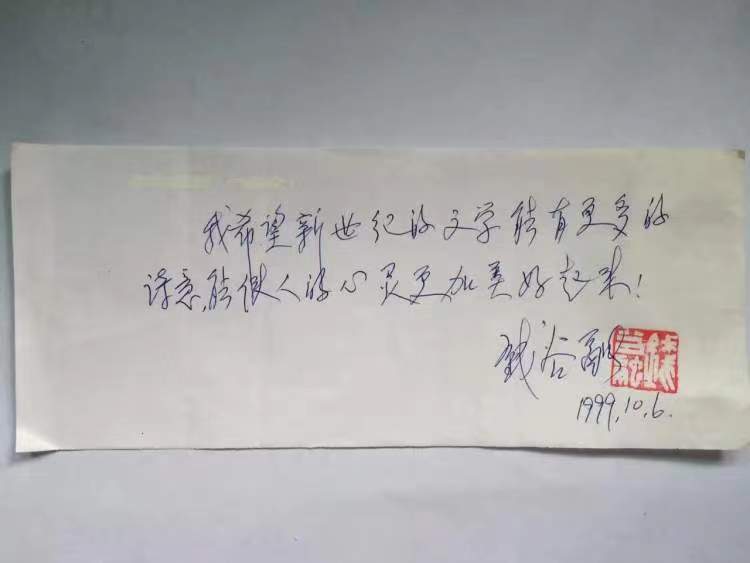 我希望新世纪的文学能有更多的
诗意,能使人的心灵更加美好起来!
钱谷融
1999.10.6.